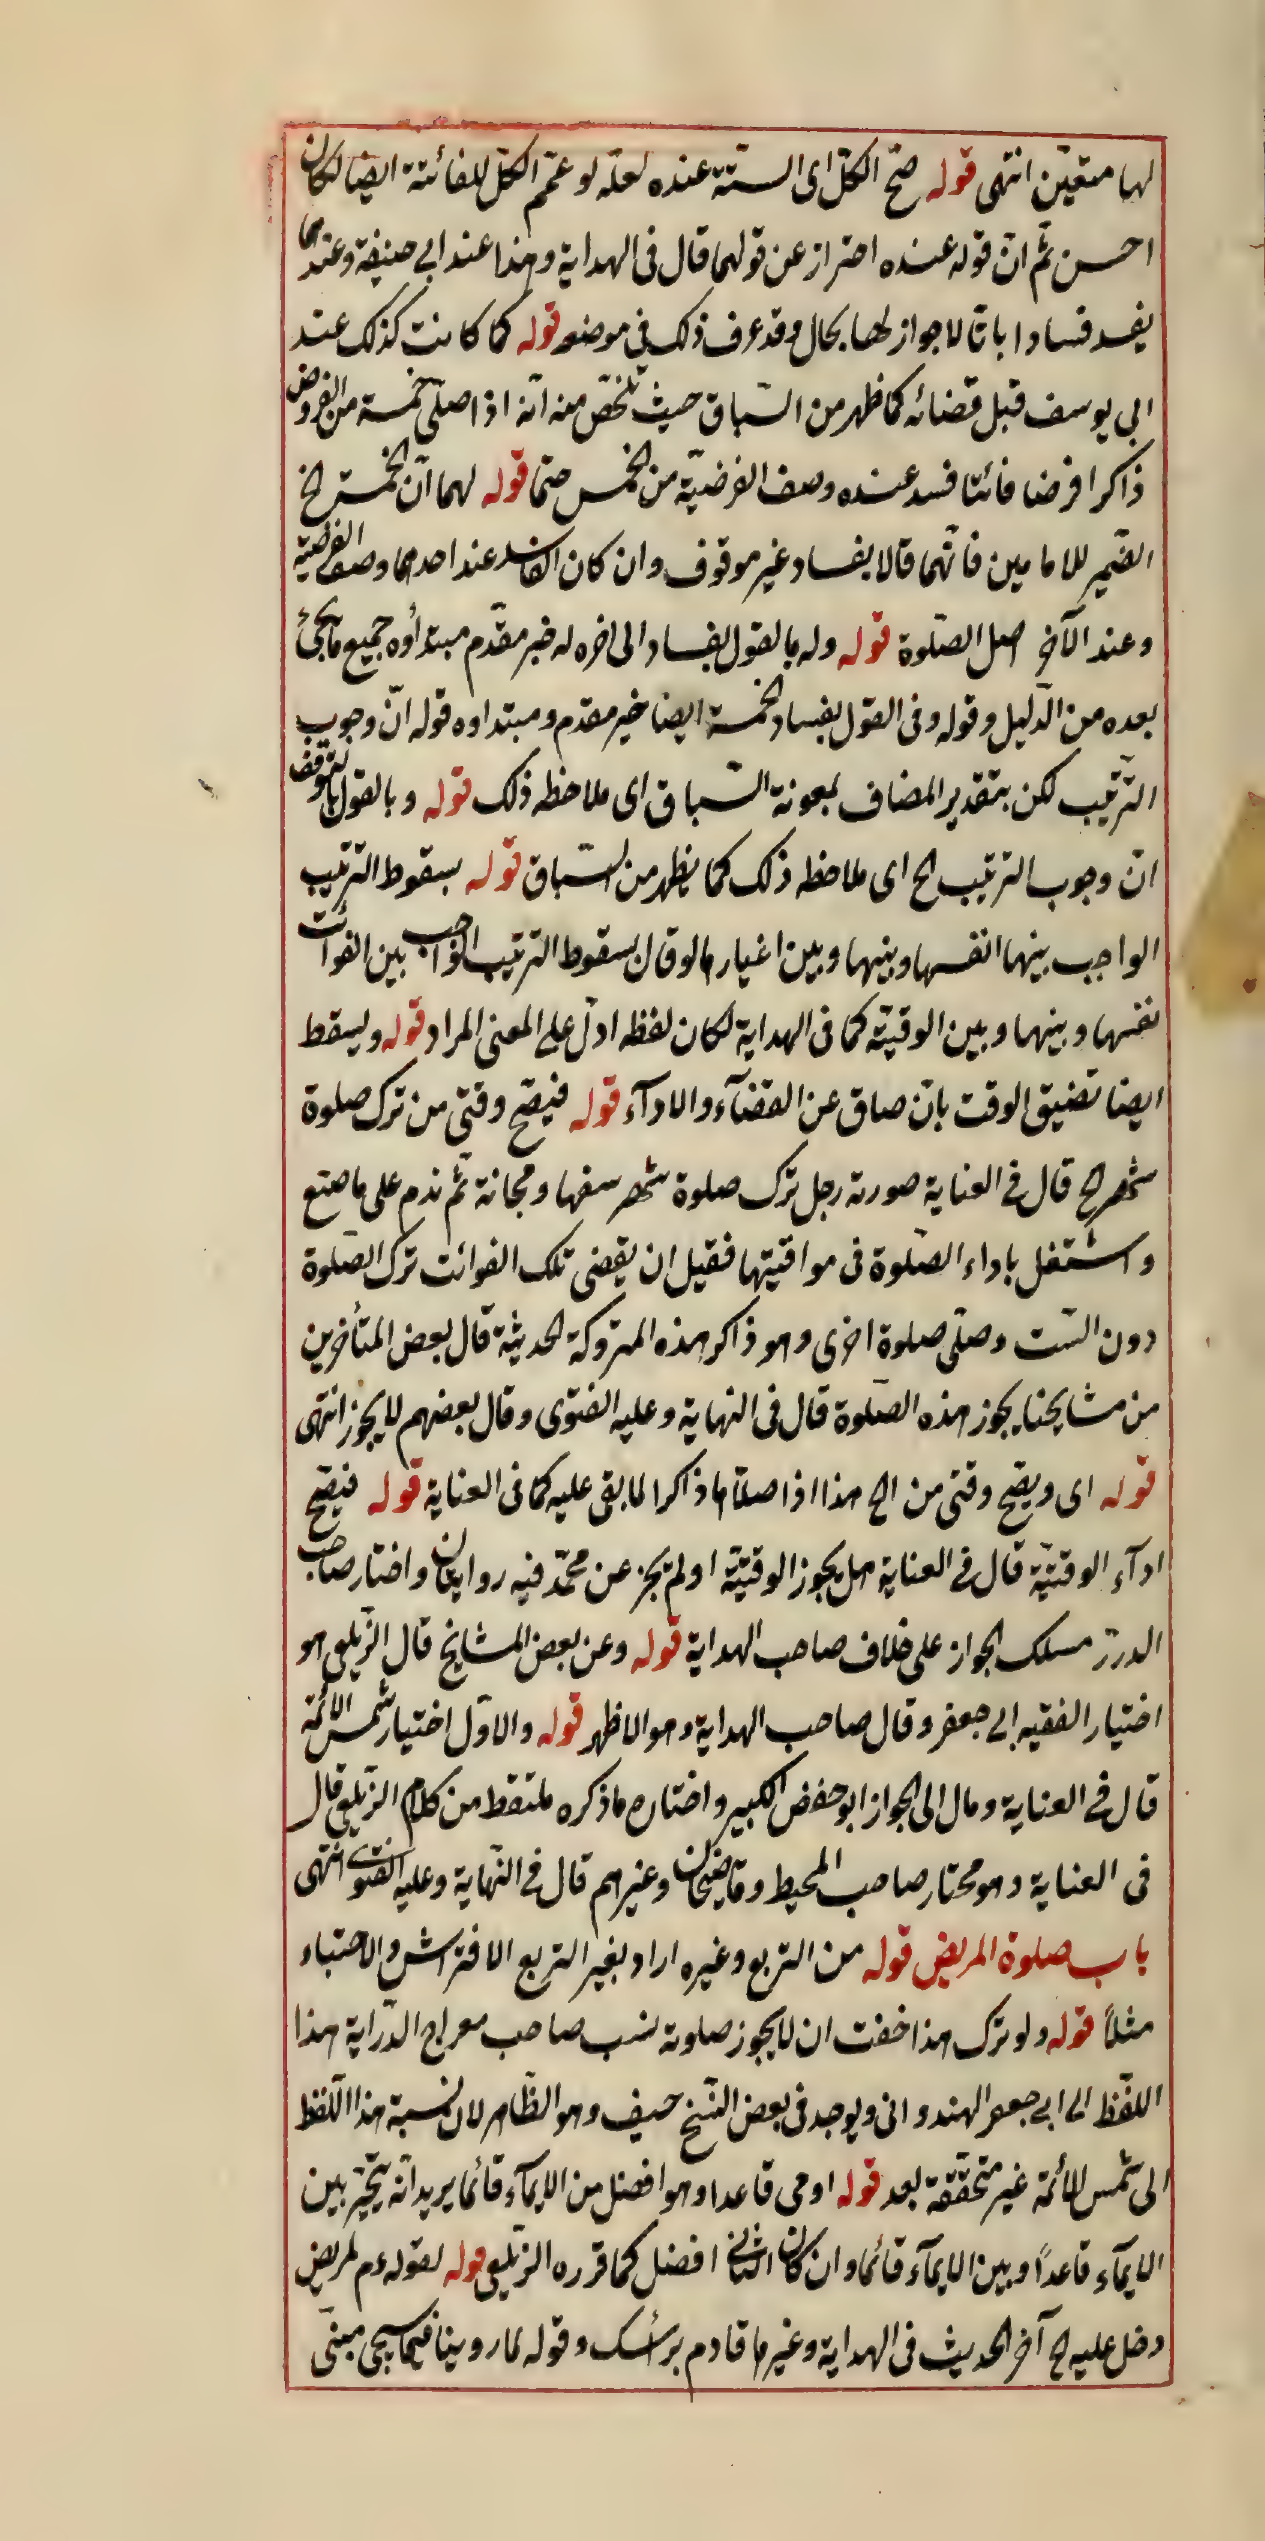 لها متعيّن انتهى قوله صحّ الكلّ اى الستة عنده لعلّه لو عمّم الكلّ للفائتة ايضا لكان
احسن ثم انّ قوله عنده احتراز عن قولهما قال فى الهداية وهذا عند ابى حنيفة وعندهما
يفسد فسادا باتا لا جواز لها بحال وقد عرف ذلك فى موضعه قوله كما كانت كذلك عند
ابى يوسف قبل قضائه كما ظهر من السّباق حيث تلخّص منه انّه اذا صلّى خمسة من الفروض
ذاكرا فرضا فائتا فسد عنده وصف الفرضيّة من الخمس حتما قوله لهما انّ الخمسة الخ
الضّمير للامامين فانّهما قالا بفساد غير موقوف وان كان الفاسد عند احدهما وصف الفرضية
وعند الآخر اصل الصّلوة قوله وله بالقول بفساد الى اخره له خبر مقدّم مبتدأوه جميع ما يجئ
بعده من الدّليل وقوله وفى القول بفساد الخمسة ايضا خبر مقدم ومبتداوه قوله انّ وجوب
التّرتيب لكن بتقدير المضاف لمعونة السّباق اى ملاحظه ذلك قوله وبالقول بالتوقف
انّ وجوب الترتيب الخ اى ملاحظه ذلك كما يظهر من السّباق قوله بسقوط الترتيب
الواجب بينها انفسها وبينها وبين اغيارها لو قال بسقوط الترتيب الواجب بين الفوائت
نفسها وبينها وبين الوقتيّة كما فى الهداية لكان لفظه ادلّ على المعنى المراد قوله ويسقط
ايضا تضيّق الوقت بان ضاق عن القضآء والادآء قوله فيصحّ وقتىّ من ترك صلوة
شهر الخ قال فى العناية صورته رجل ترك صلوة شهر سفها ومجانة ثم ندم على ما صنع
واشتغل باداء الصّلوة فى مواقيتها فقبل ان يقضى تلك الفوائت ترك الصّلوة
دون السّت وصلّى صلوة اخرى وهو ذاكر لهذه المتروكة الحديثة قال بعض المتأخرين
من مشايخنا يجوز هذه الصّلوة قال فى النهاية وعليه الفتوى وقال بعضهم لا يجوز انتهى
قوله اى ويصحّ وقتى من الخ هذا اذا صلّاها ذاكرا لما بقى عليه كما فى العناية قوله فيصحّ
ادآء الوقتيّة قال فى العناية هل يجوز الوقتيّة او لم يجز عن محمّد فيه روايتان واختار صاحب
الدرر مسلك الجواز على خلاف صاحب الهداية قوله وعن بعض المشايخ قال الزّيلعى هو
اختيار الفقيه ابى جعفر وقال صاحب الهداية وهو الاظهر قوله والاوّل اختيار شمس الائمة
قال فى العناية ومال الى الجواز ابو حفص الكبير واختاره ما ذكره ملتقط من كلام الزّيلعى قال
فى العناية وهو مختار صاحب المحيط وقاضيخان وغيرهم قال فى النّهاية وعليه الفتوى انتهى
باب صلوة المريض قوله من التربع وغيره اراد بغير التربع الافتراش والاحتباء
مثلاً قوله ولو ترك هذا خفت ان لا يجوز صلوته نسب صاحب معراج الدّراية هذا
اللّفظ الى ابى جعفر الهندوانى ويوجد فى بعض النّسخ وهو الظّاهر لان نسبة هذا اللّفظ
الى شمس الائمّة غير متحقّقة بعد قوله اومى قاعدا وهو افضل من الايمآء قائما يريد انّه يتخيّر بين
الايمآء قاعداً وبين الايمآء قائما وان كان الثانى افضل كما قرره الزّيلعى قوله لقوله عم لمريض
دخل عليه الخ آخر الحديث فى الهداية وغيرها برأسك وقوله لما روينا فيما سيجى مبنى